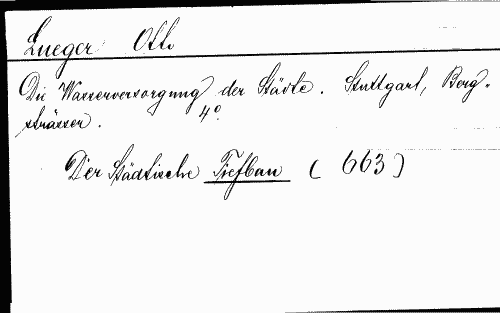 Lueger Otto
Die Wasserversorgung der Städte. Stuttgart, Berg-
strässer. 4°.
Der Städtische Tiefbau (663)